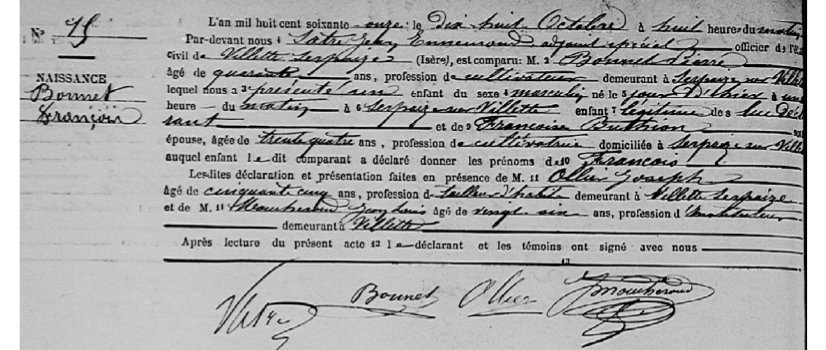 N° 75
NAISSANCE
Bonnet
François
L'an mil huit cent soixante - onze le Dix huit Octobre à huit heures du matin
Par-devant nous 1 Satre Jean adjoint spécial officier de l'é
civil de Villette Serpaize (Isère), est comparu: M. 2 Bonnet Pierre
âgé de quarante ans, profession de cultivateur demeurant à Serpaize sur Villette
lequel nous a 3 présenté un enfant du sexe 4 masculin né le 5 jour D'hier à une
heure du matin à 6 Serpaize sur Villette enfant 7 légitime de 8 luc Décl
rant et de 9 Françoise Buthion
épouse, âgée de trente quatre ans, profession de cultivatrice domiciliée à Serpaize sur Villette
auquel enfant le dit comparant a déclaré donner les prénoms de 10 François
Lesdites déclaration et présentation faites en présence de M. 11 Ollier Joseph
âgé de cinquante cinq ans, profession de tailleur d'habits demeurant à Villette Serpaize
et de M. 11 Moucheroud Jean Louis âgé de vingt six ans, profession d'instituteur
demeurant à Villette
Après lecture du présent acte 12 le déclarant et les témoins ont signé avec nous
13
Bonnet Ollier Moucheroud